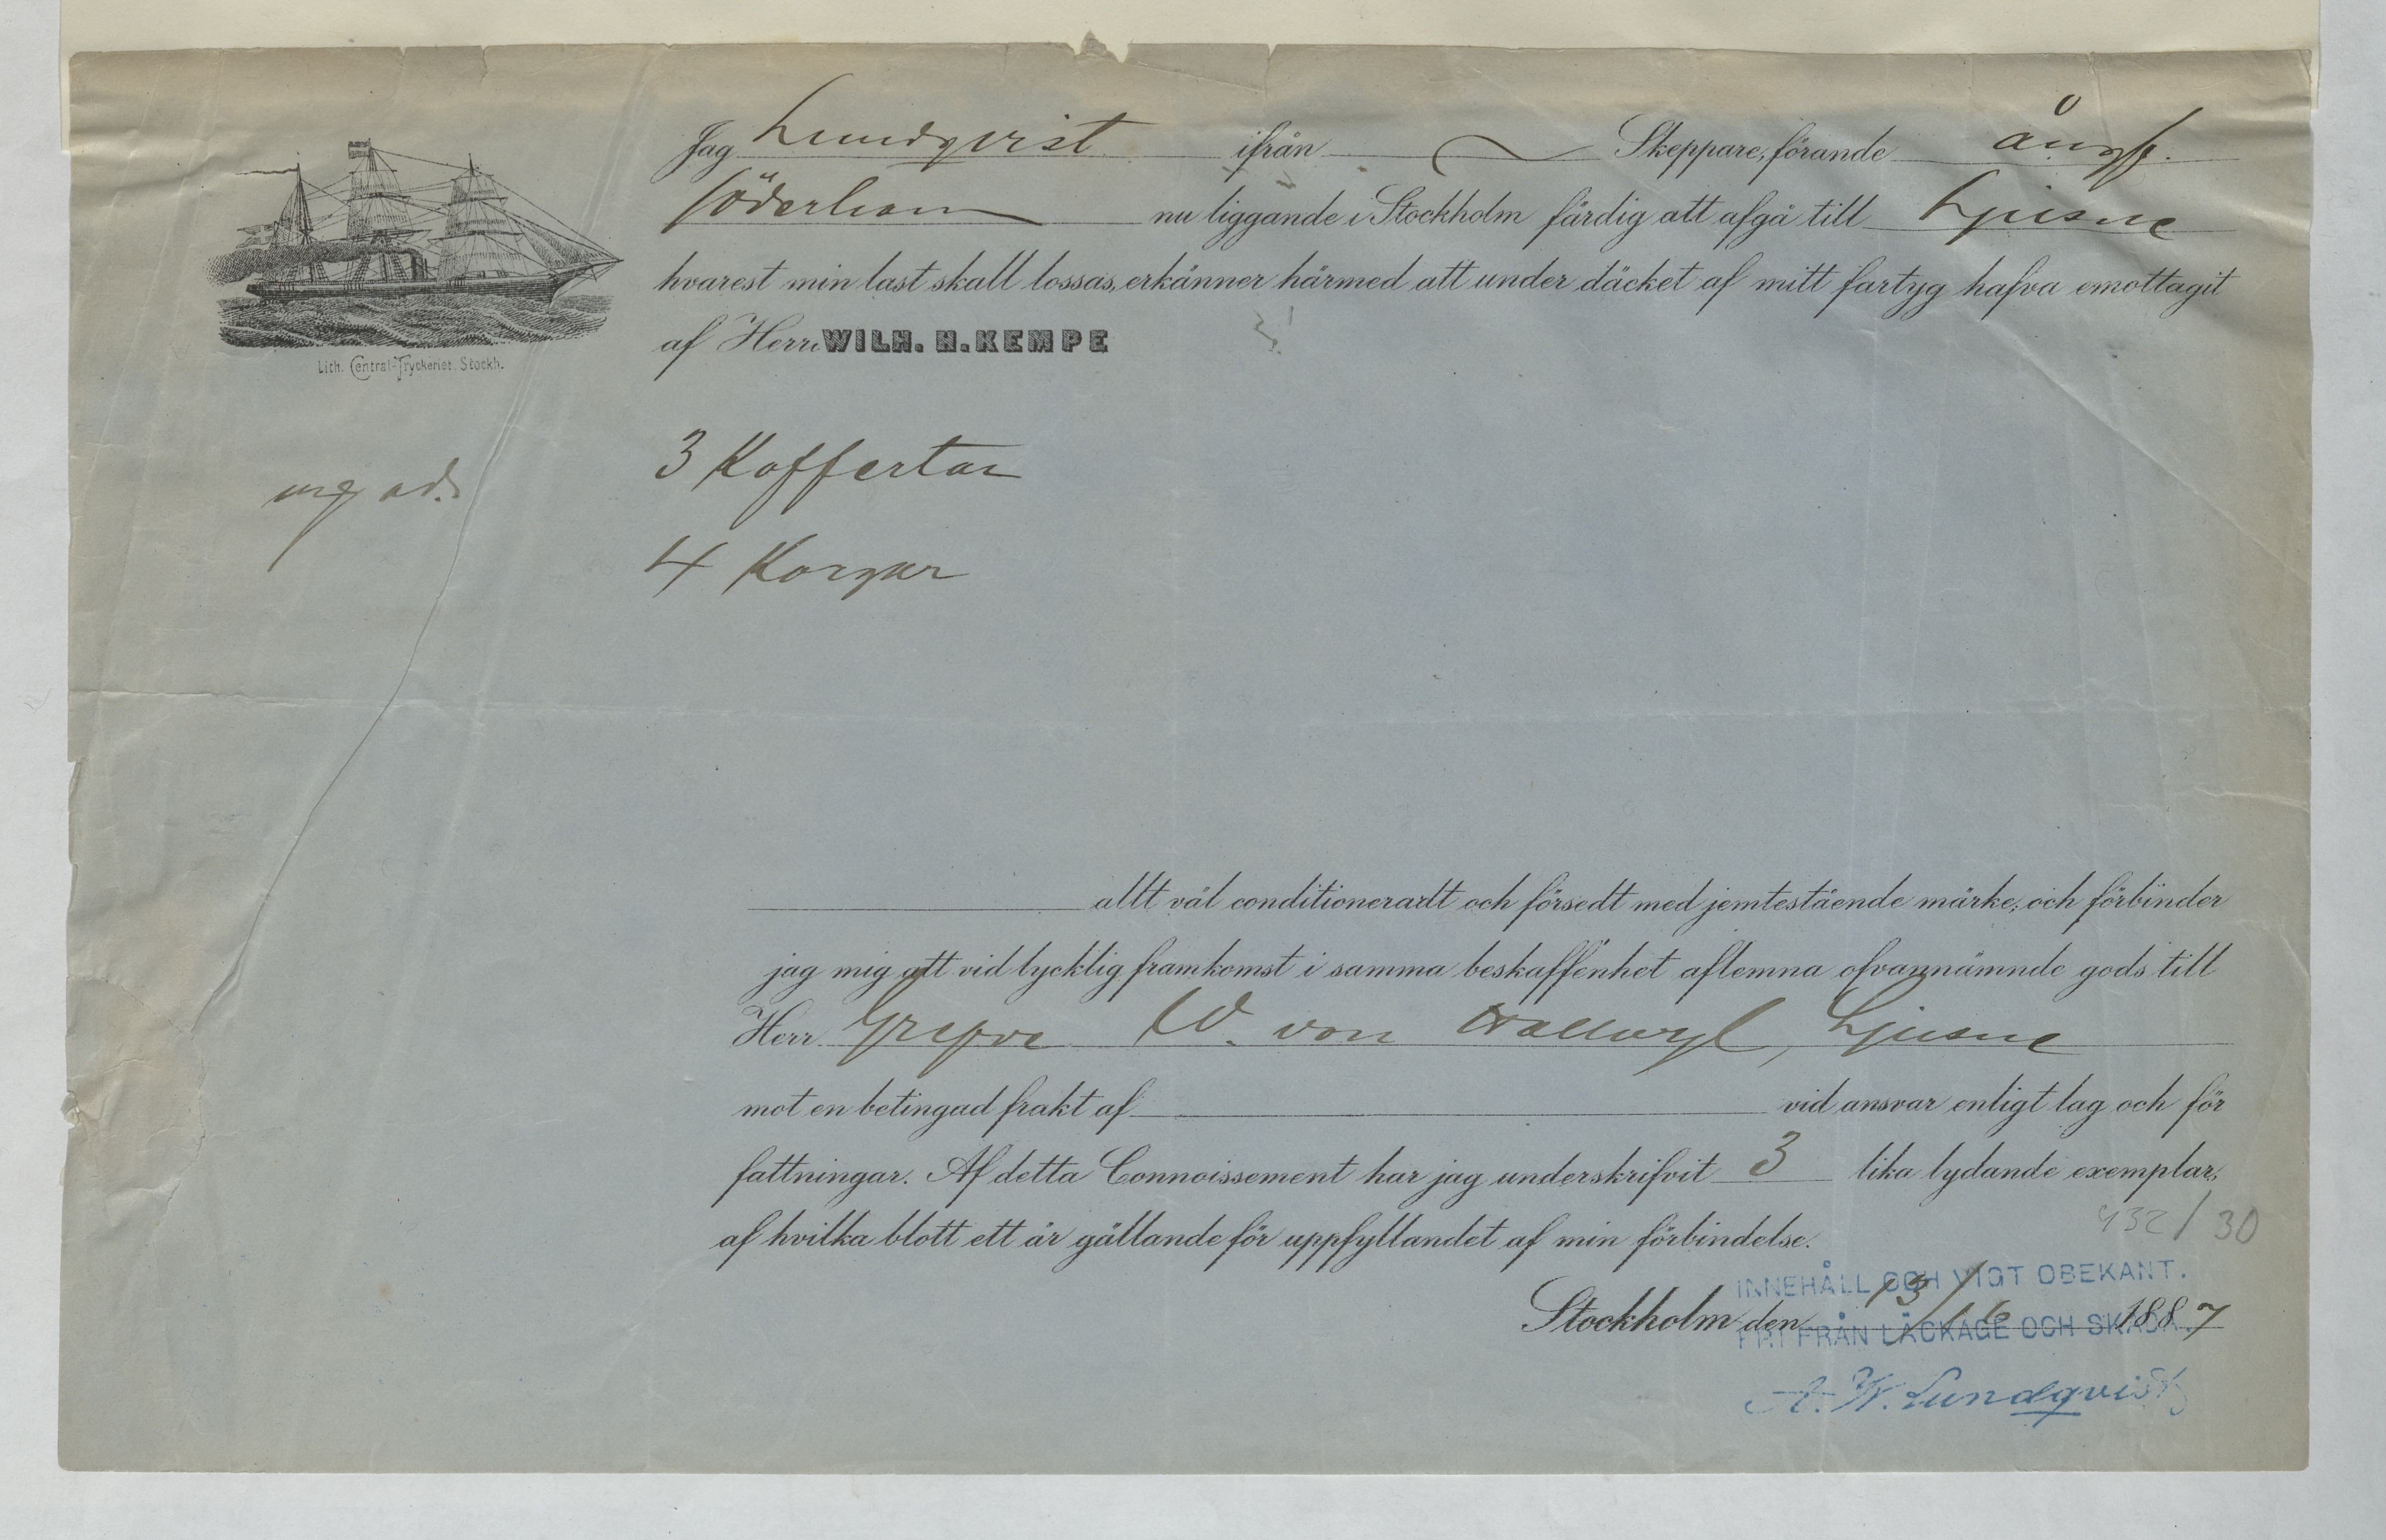 Jag Lundqvist ifrån Skeppare, förande ångf.
Söderhamn nu liggande i Stockholm färdig att afgå till Ljusne
hvarest min last skall lossas, erkänner härmed att under däcket af mitt fartyg hafva emottagit
af Herr WILH. H. KEMPE
Lith. Central-Tryckeriet. Stockh.
3 Koffertar
ad.
4 Korgar
allt väl conditioneradt och försedt med jemtestående märke; och förbinder
jag mig att vid lycklig framkomst i samma beskaffenhet aflemna ofvannämnde gods till
Herr Grefve W. von Hallwyl, Ljusne
mot en betingad frakt af vid ansvar enligt lag och för
fattningar. Af detta Connoissement har jag underskrifvit 3 lika lydande exemplar,
af hvilka blott ett är gällande för uppfyllandet af min förbindelse.
432/30
INNEHÅLL OCH VIGT OBEKANT.
Stockholm den 13/6 1887
FRI FRÅN LÄCKAGE OCH SKADA.
A. W. Lundqvist